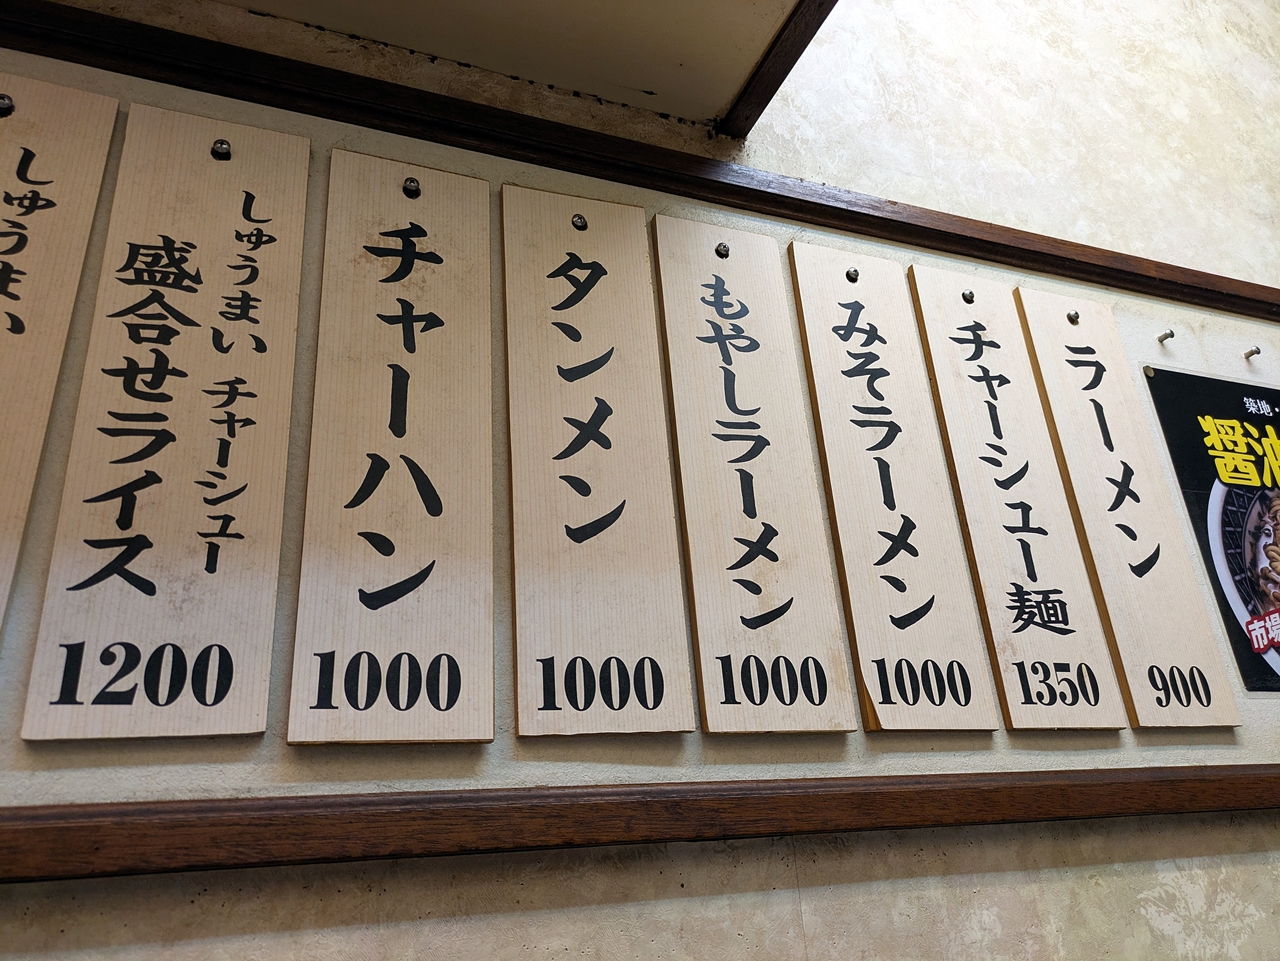 ラーメン
900
チャーシュー麺
1350
みそラーメン
1000
もやしラーメン
1000
タンメン
1000
チャーハン
1000
しゅうまい チャーシュー
盛合せライス
1200
しゅうまい
築地・
醤油
市場